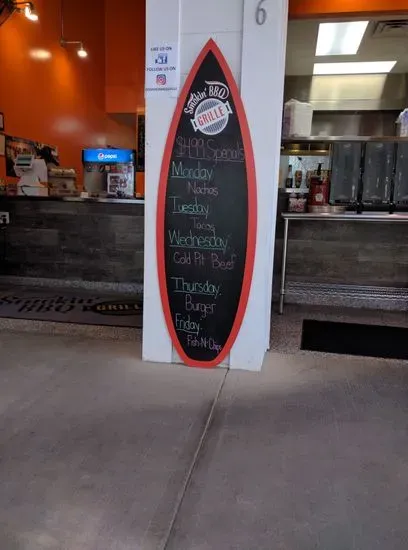 6
LIKE US ON
FOLLOW US ON
Smokin' BBQ
GRILLE
$4.99 Specials
Monday
Nachos
Tuesday
Tacos
Wednesday
Cold Pit Beef
Thursday:
Burger
Friday:
Fish-N-Chips
pepsi
Smokin' BBQ
GRILLE